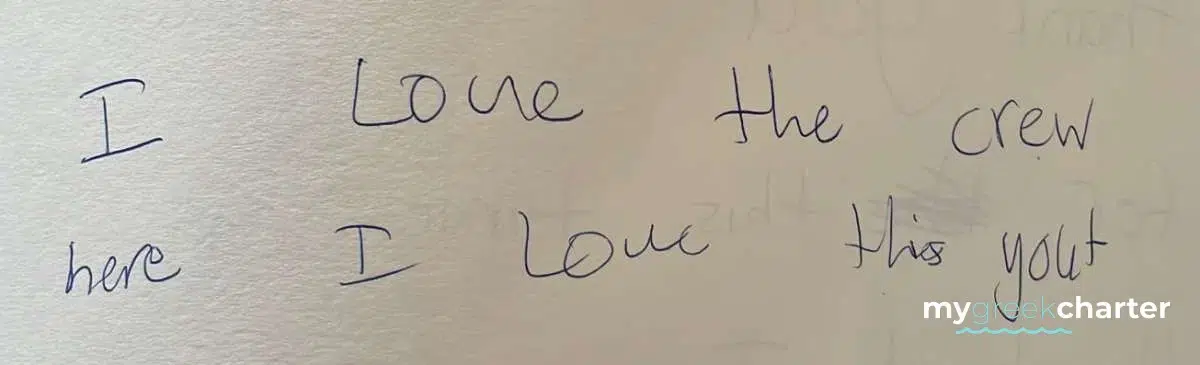 I Love the crew
here I Love this yout
mygreekcharter